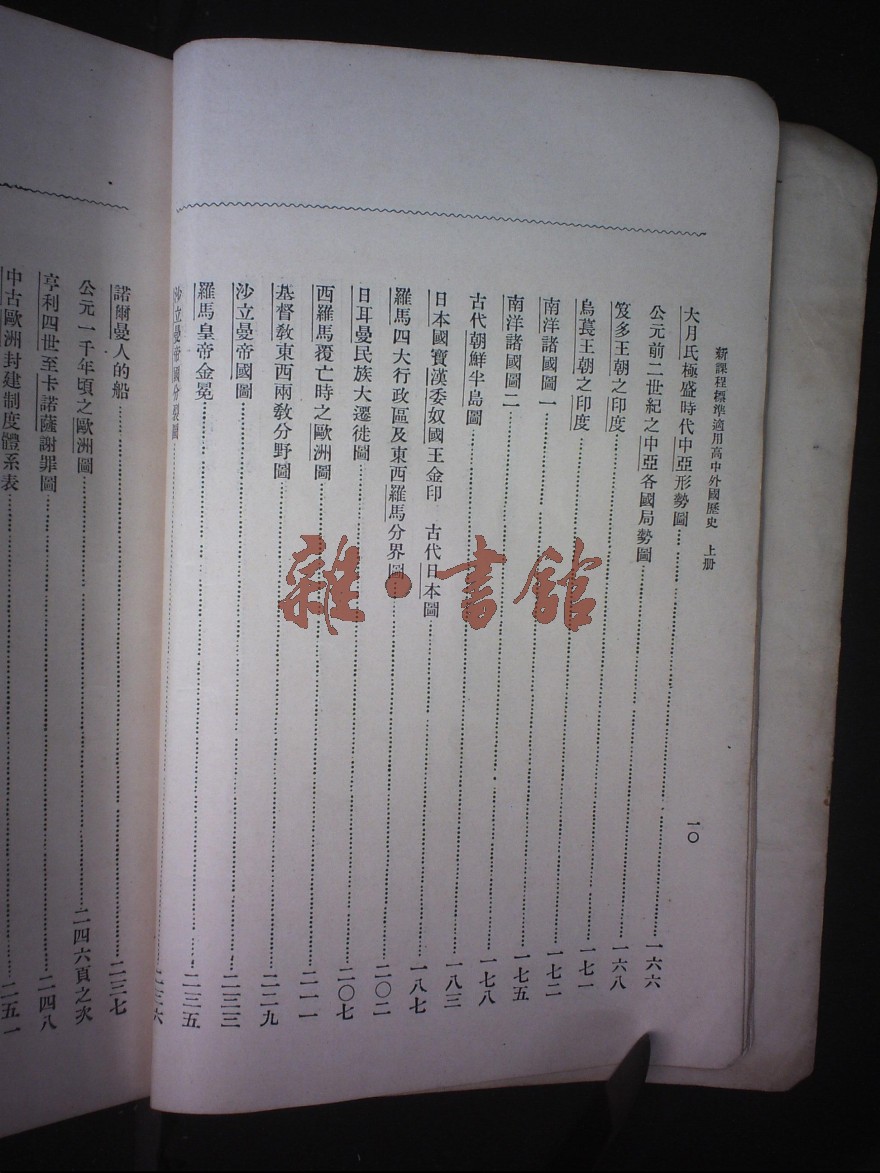 新課程標準適用高中外國歷史 上册 一〇
大月氏極盛時代中亞形勢圖……一六六
公元前二世紀之中亞各國局勢圖……一六八
笈多王朝之印度……一七一
烏萇王朝之印度……一七二
南洋諸國圖一……一七五
南洋諸國圖二……一七八
古代朝鮮半島圖……一八三
日本國寶漢委奴國王金印 古代日本圖……一八七
羅馬四大行政區及東西羅馬分界圖……二〇二
日耳曼民族大遷徙圖……二〇七
西羅馬覆亡時之歐洲圖……二一一
基督教東西兩教分野圖……二二九
沙立曼帝國圖……二三三
羅馬皇帝金冕……二三五
沙立曼帝國分裂圖……二三六
諾爾曼人的船……二三七
公元一千年頃之歐洲圖……二四六頁之次
亨利四世至卡諾薩謝罪圖……二四八
中古歐洲封建制度體系表……二五一
雜·書館